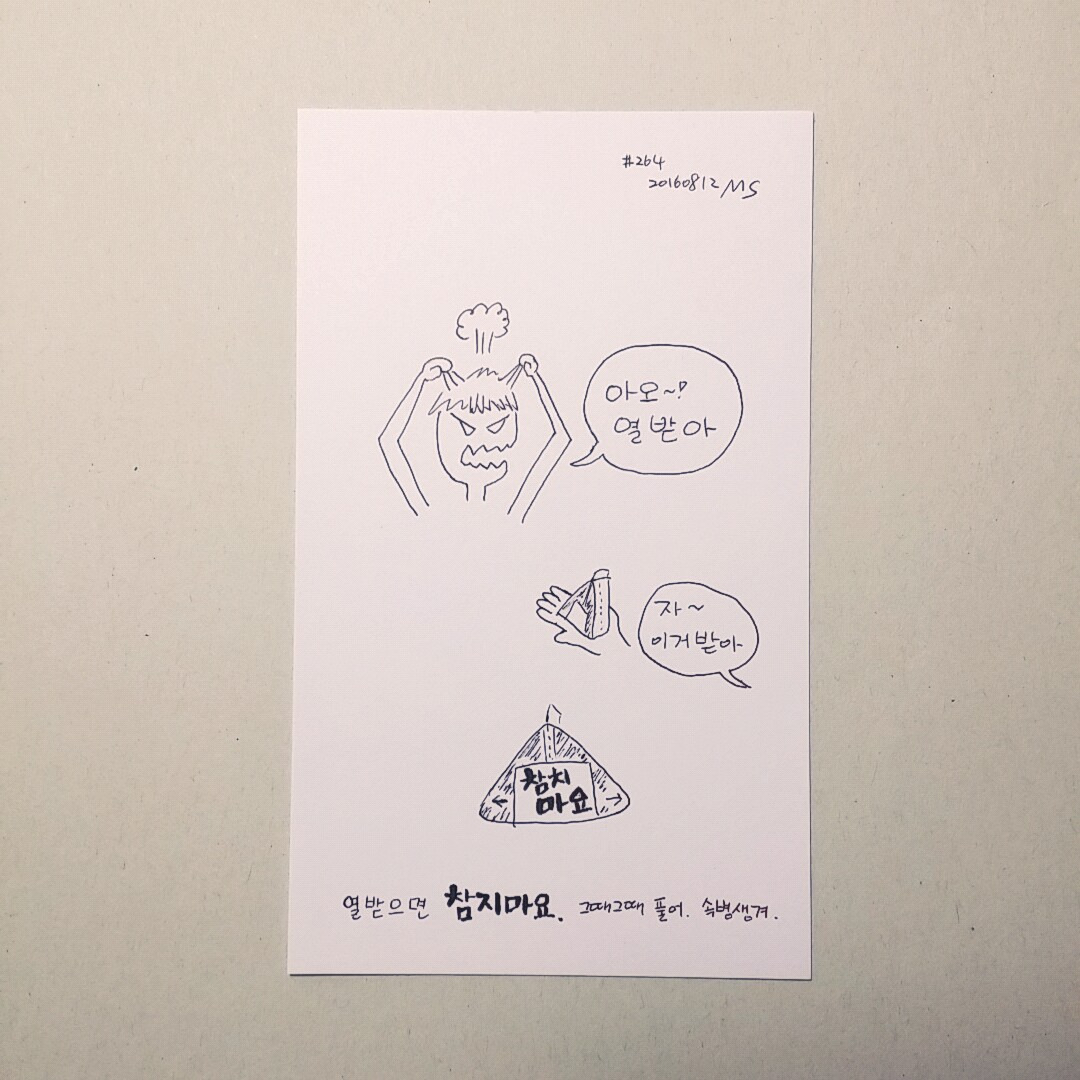 #264
20160812 MS
아오~!
열받아
자~
이거 받아
참치
마요
열받으면 참지마요. 그때그때 풀어. 속병생겨.